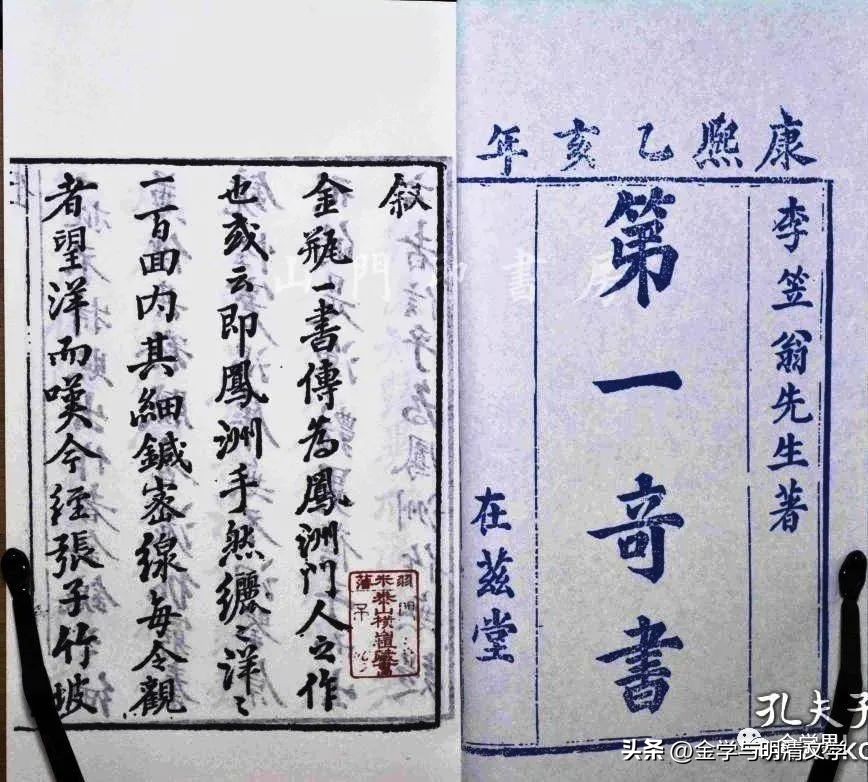 康熙乙亥年
李笠翁先生著
第一奇書
在茲堂
叙
金瓶一書傳為鳳洲門人之作
也或云即鳳洲手然纚〻洋〻
一百回内其細鍼密線每令觀
者望洋而嘆今經張子竹坡
山門 書
孔夫子
金学界
头条 @金学与明清文学